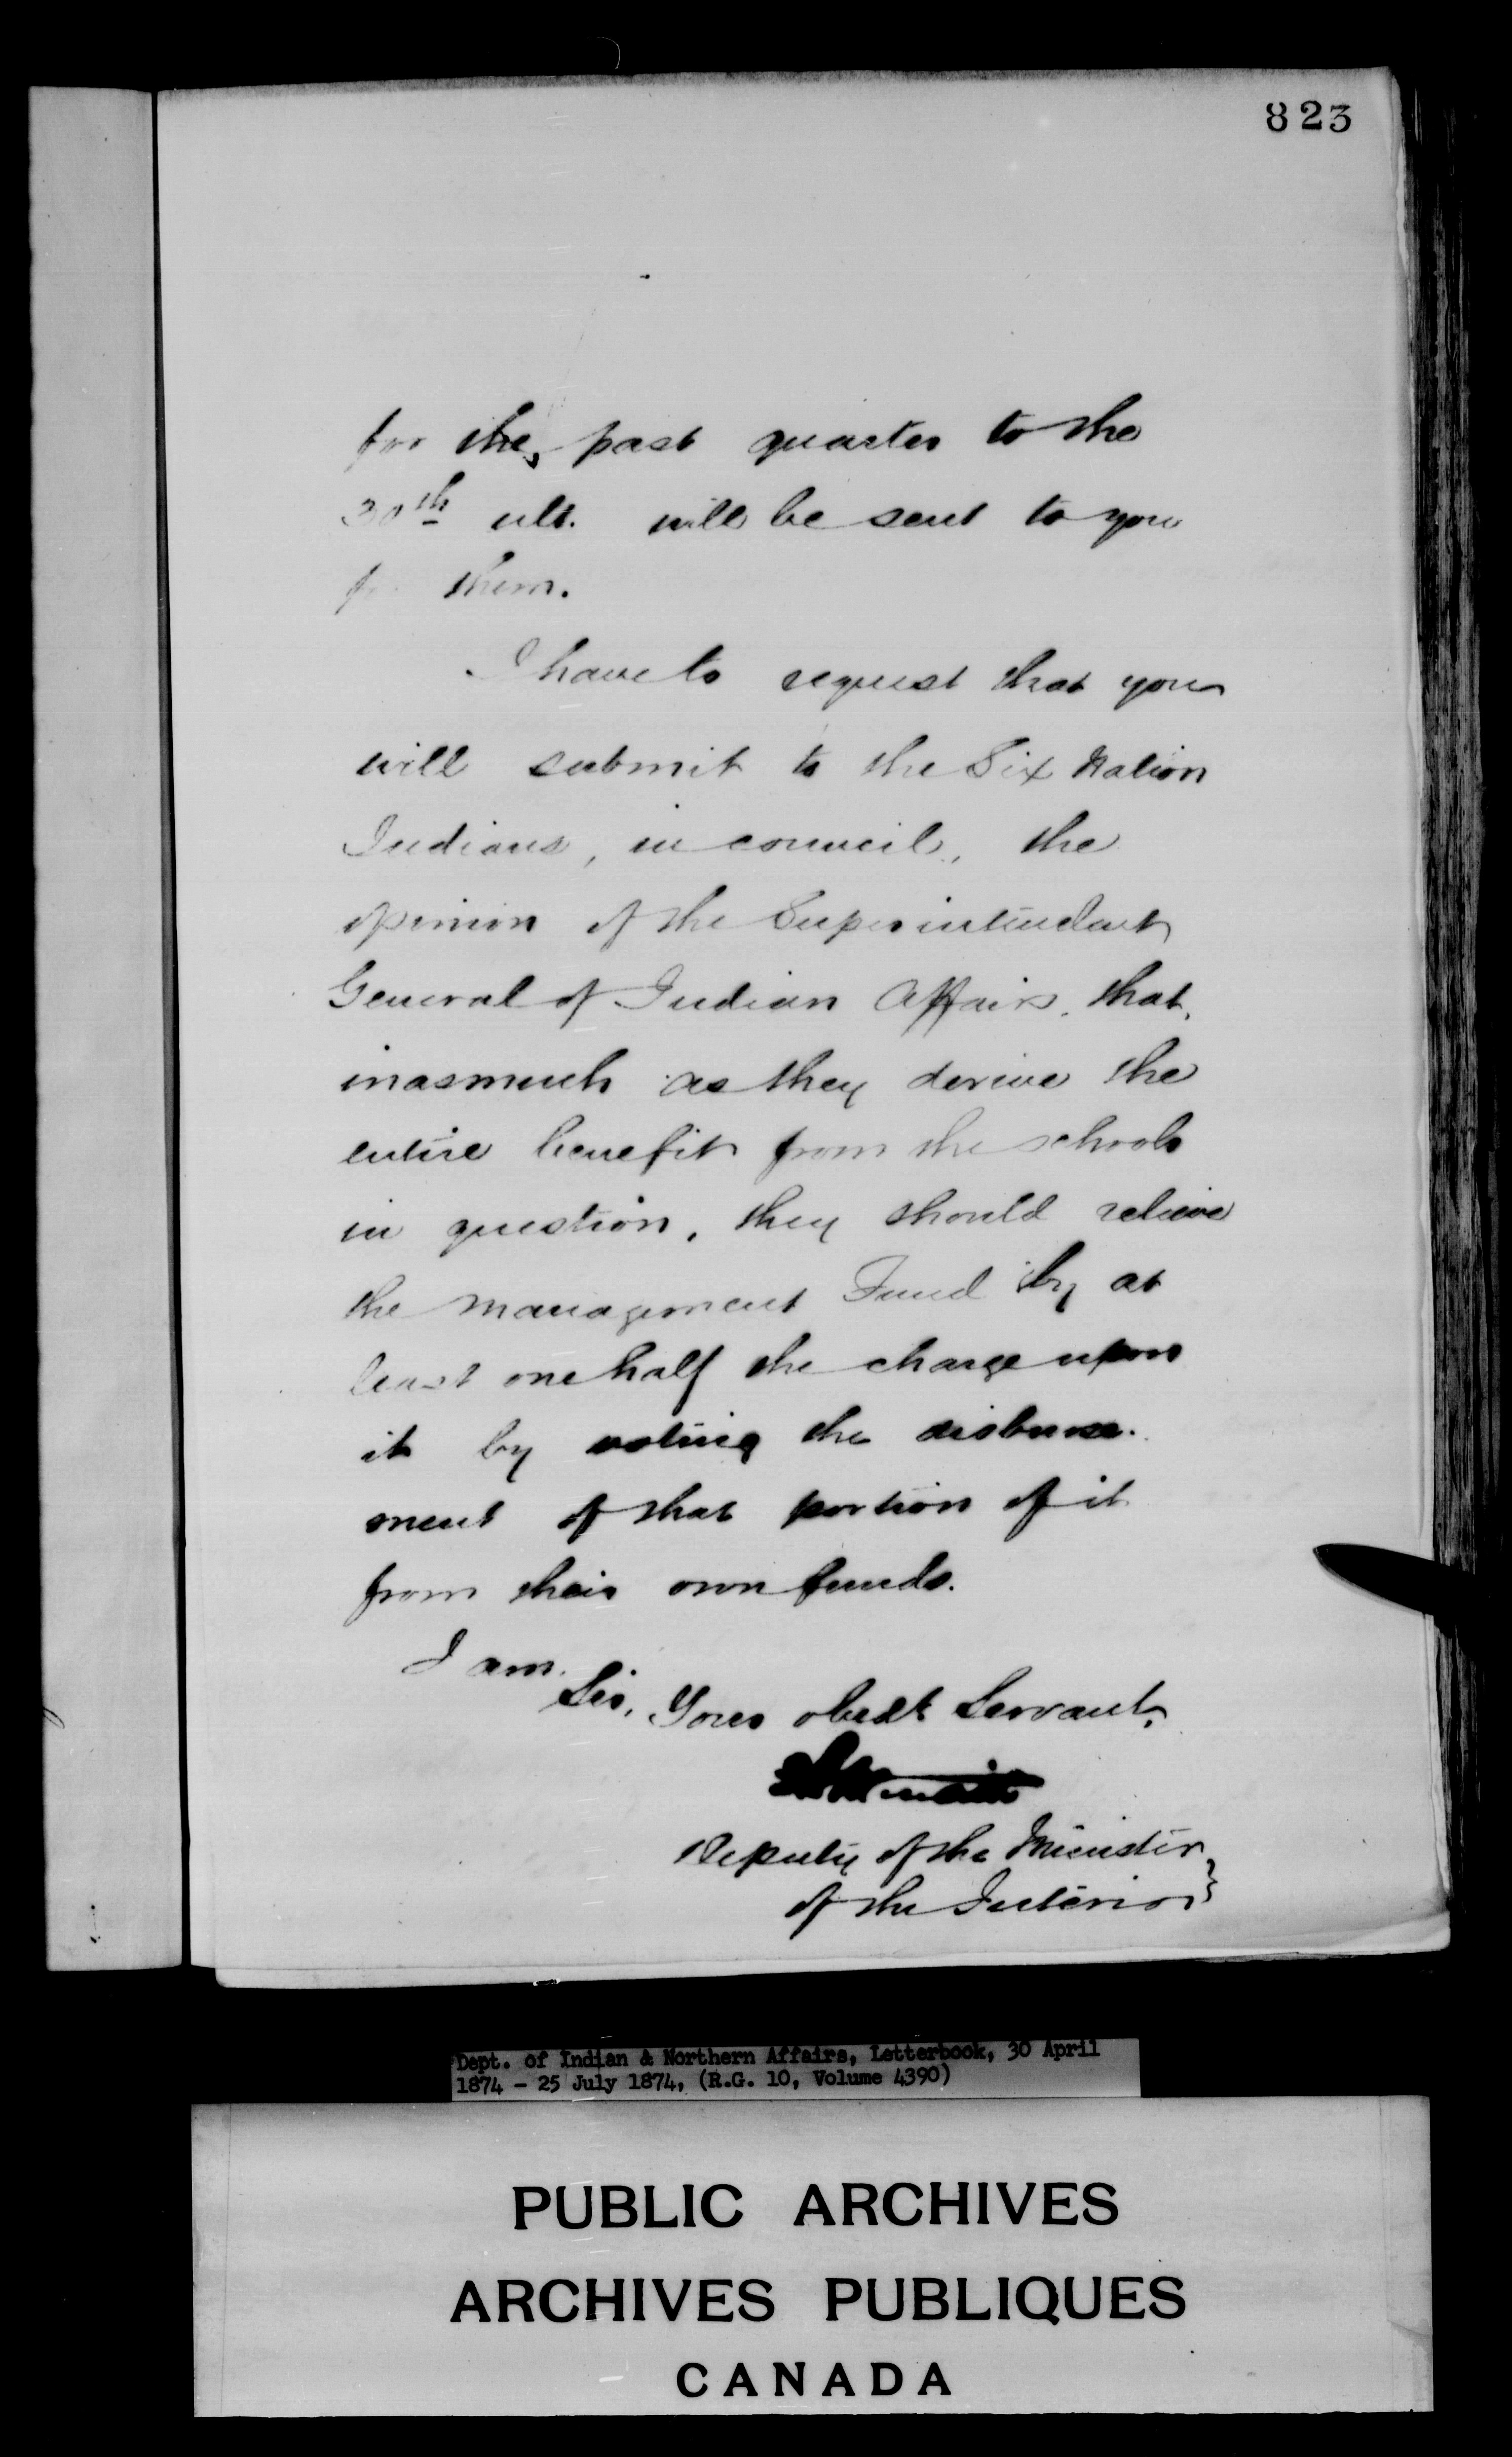 823
for the, past quarter to the
30th ult. will be sent to you
for them.
I have to request that you
will submit to the Six Nation
Indians, in council, the
opinion of the Superintendent
General of Indian Affairs, that,
inasmuch as they derive the
entire benefit from the schools
in question, they should relieve
the Management Fund by at
least one half the charge upon
it by voting the disburse-
ment of that portion of it
from their own funds.
I am.
Sir, Your obedt Servant,
Deputy of the Minister
of the Interior
Dept. of Indian & Northern Affairs, Letterbook, 30 April
1874 - 25 July 1874, (R.G. 10, Volume 4390)
PUBLIC ARCHIVES
ARCHIVES PUBLIQUES
CANADA